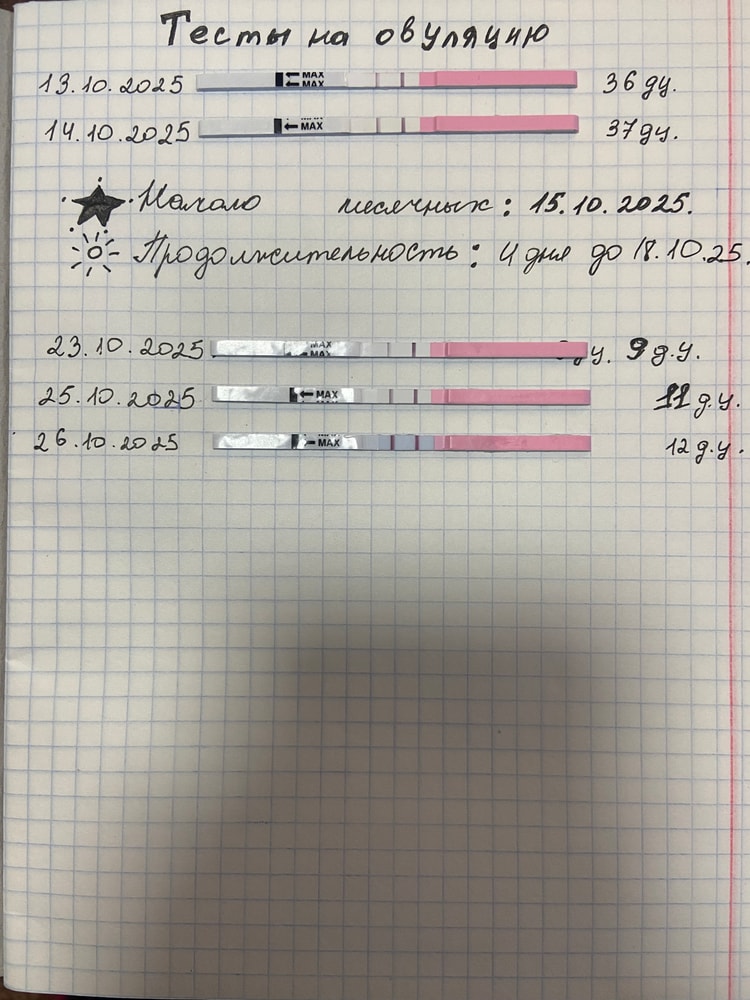 Тесты на овуляцию
13.10.2025 MAX MAX 36 ду.
14.10.2025 MAX 37 ду.
Начало месячных: 15.10.2025.
Продолжительность: 4 дня до 18.10.25.
23.10.2025 MAX MAX ду. 9 д.у.
25.10.2025 MAX 11 д.у.
26.10.2025 MAX 12 д.у.